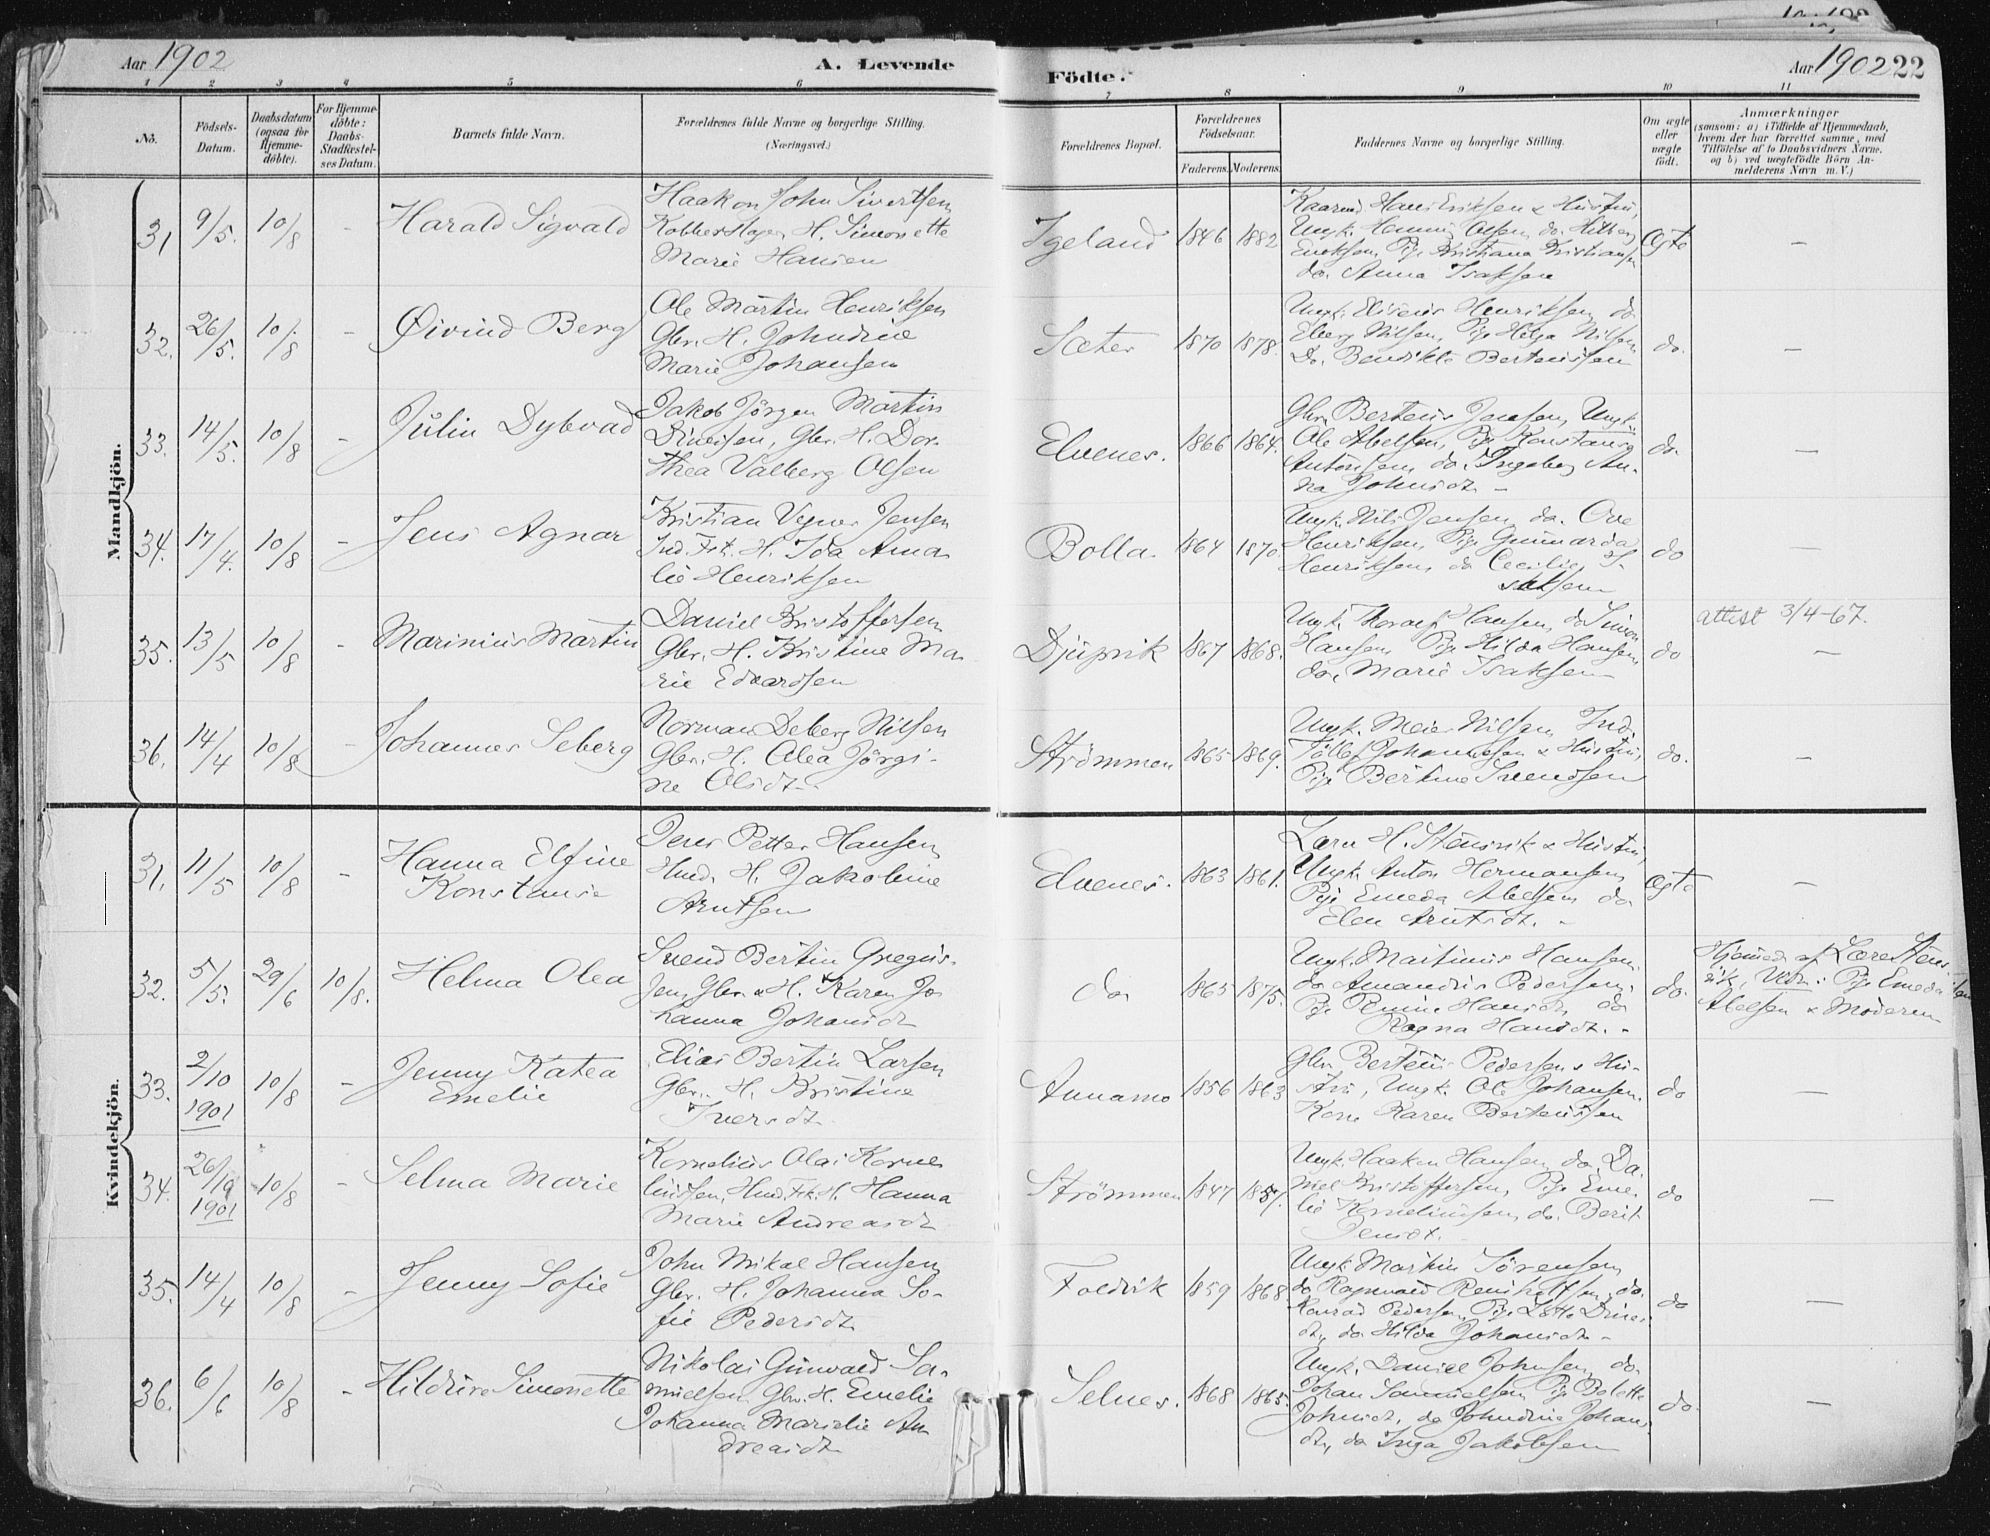 Aar 1902
A. Levende
Födte.
Aar 1902 22
1 2 3 4 5 6 7 8 9 10 11
No.
Födsels-
Datum.
Daabsdatum
(ogsaa for
Hjemme-
döbte).
For Hjemme-
döbte:
Daabs-
Stadfæstel-
ses Datum.
Barnets fulde Navn.
Forældrenes fulde Navne og borgerlige Stilling.
(Næringsvei.)
Forældrenes Bopæl.
Forældrenes
Födselsaar.
Faderens. Moderens.
Faddernes Navne og borgerlige Stilling.
Om ægte
eller
uægte
födt.
Anmærkninger
(saasom: a) i Tilfælde af Hjemmedaab,
hvem der har forrettet samme, med
Tilföielse af to Daabsvidners Navne,
og b) ved uægtefödte Börn An-
melderens Navn m. V.)
Mandkjön.
31 9/5. 10/8 - Harald Sigvald
Haakon John Sivertsen
H. Simonette
Marie Hansen
Igeland 1846 1882
Hans Eriksen & Hustru,
Ungk. Henning Olsen do.
Pige Kristiana Kristiansen
do. Anna Isaksen
Ægte -
32. 26/5. 10/8 - Øivind Berg
Ole Martin Henriksen
Gbr. H. Johndine
Marie Johansen
Sæter 1870 1878.
Ungk. Henriksen do
Nilsen, Pige Helga Nilsen
Do. Bendikte Berteussen
do. -
33. 14/5. 10/8 - Julin Dybvad
Jakob Jörgen Martin
Dinesen, Gbr. H. Dor-
thea Valberg Olsen
Elvenes. 1866 1864.
Gbr. Berteus Jensen, Ungk.
Ole Abelsen, Pige Konstanse
Antonsen, do. Ingeborg An-
na Johnsdt. -
do. -
34. 17/4. 10/8 - Jens Agnar
Kristian Vegner Jensen
Ind. Fsk. H. Ida Ama-
lie Henriksen
Bolla. 1864 1870
Ungk. Nils Jensen, do. Ove
Henriksen, Pige Gunnarda
Henriksen, do Cecilie I-
saksen
do -
35. 13/5 10/8 - Marinius Martin
Daniel Kristoffersen
Gbr. H. Kristine Ma-
rie Edvardsen
Djupvik 1867 1868.
Ungk. Thoralf Hansen, do Simon
Hansen Pige Hilda Hansen,
do, Marie Isaksen
do
attest 3/4-67.
-
36. 14/4 10/8 - Johannes Seberg
Norman Deberg Nilsen
Gbr. H. Alea Jörgi-
ne Olsdt.
Strömmen 1865 1869.
Ungk. Meier Nilsen, Ind.
Tollef Johannesen & Hustru,
Pige Bertine Svendsen
do. -
Kvindekjön.
31. 11/5 10/8 - Hanna Elfine
Konstanse
Jens Petter Hansen
Hmd. H. Jakobine
Arntsen
Elvenes. 1863 1861.
Lærer H. Stensvik & Hustru,
Ungk. Anton Hermansen,
Pige Emeda Abelsen do
Elen Arntsdt. -
Ægte -
32. 5/5. 29/6 10/8. Helma Olea
Svend Bertin Gregus-
sen, Gbr. & H. Karen Jo-
hanna Johansdt
do 1865 1875.
Ungk. Martinus Hansen
do Amandus Pedersen,
Pige Hansdt, do
Ragna Hansdt. -
do.
Hjemmed. af Lærer Stens-
vik, Vidn: Pige Emeda
Abelsen & Moderen
33. 2/10 1901 10/8 - Jenny Katea
Emelie
Elias Bertin Larsen
Gbr. H. Kristine
Iversdt.
Annamo 1856 1863
Gbr. Berteus Pedersen & Hu-
stru, Ungk. Ole Johansen.
Kone Karen Berteussen
do -
34. 26/10 1901 10/8 - Selma Marie
Kornelius Olai Korne-
liussen, Hmd. Fsk. H. Hanna
Marie Andreasdt
Strömmen 1847 1857.
Ungk. Haakon Hansen, do. Da-
niel Kristoffersen, Pige Eme-
lie Korneliussen, do. Berit
Jensdt.
do -
35. 14/4 10/8 - Jenny Sofie
John Mikal Hansen
Gbr. H. Johanna So-
fie Pedersdt
Foldvik 1859 1868
Ungk. Martin Sörensen
do Ragnvald Reinholtsen, do.
Konrad Pedersen, Pige Lotte Dines-
dt, do Hilda Johansdt -
do -
36. 6/6 10/8 - Hildura Simonette
Nikolai Gunvald Sa-
muelsen Gbr. H. Emelie
Johanna Marselie An-
dreasdt
Selnes. 1868 1865.
Ungk. Daniel Johnsen, do.
Johan Samuelsen Pige Bolette
Johnsdt, do Johndine Johans-
dt, do Inga Jakobsen
do -